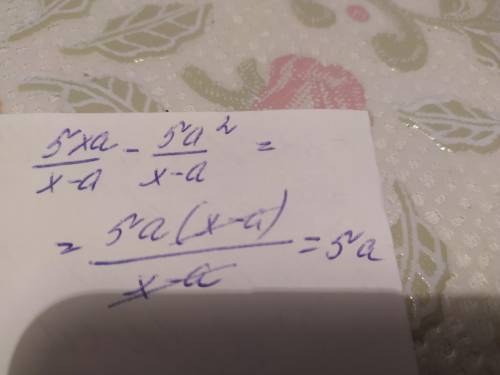 5xa/x-a - 5a²/x-a =
= 5a(x-a)/x-a = 5a